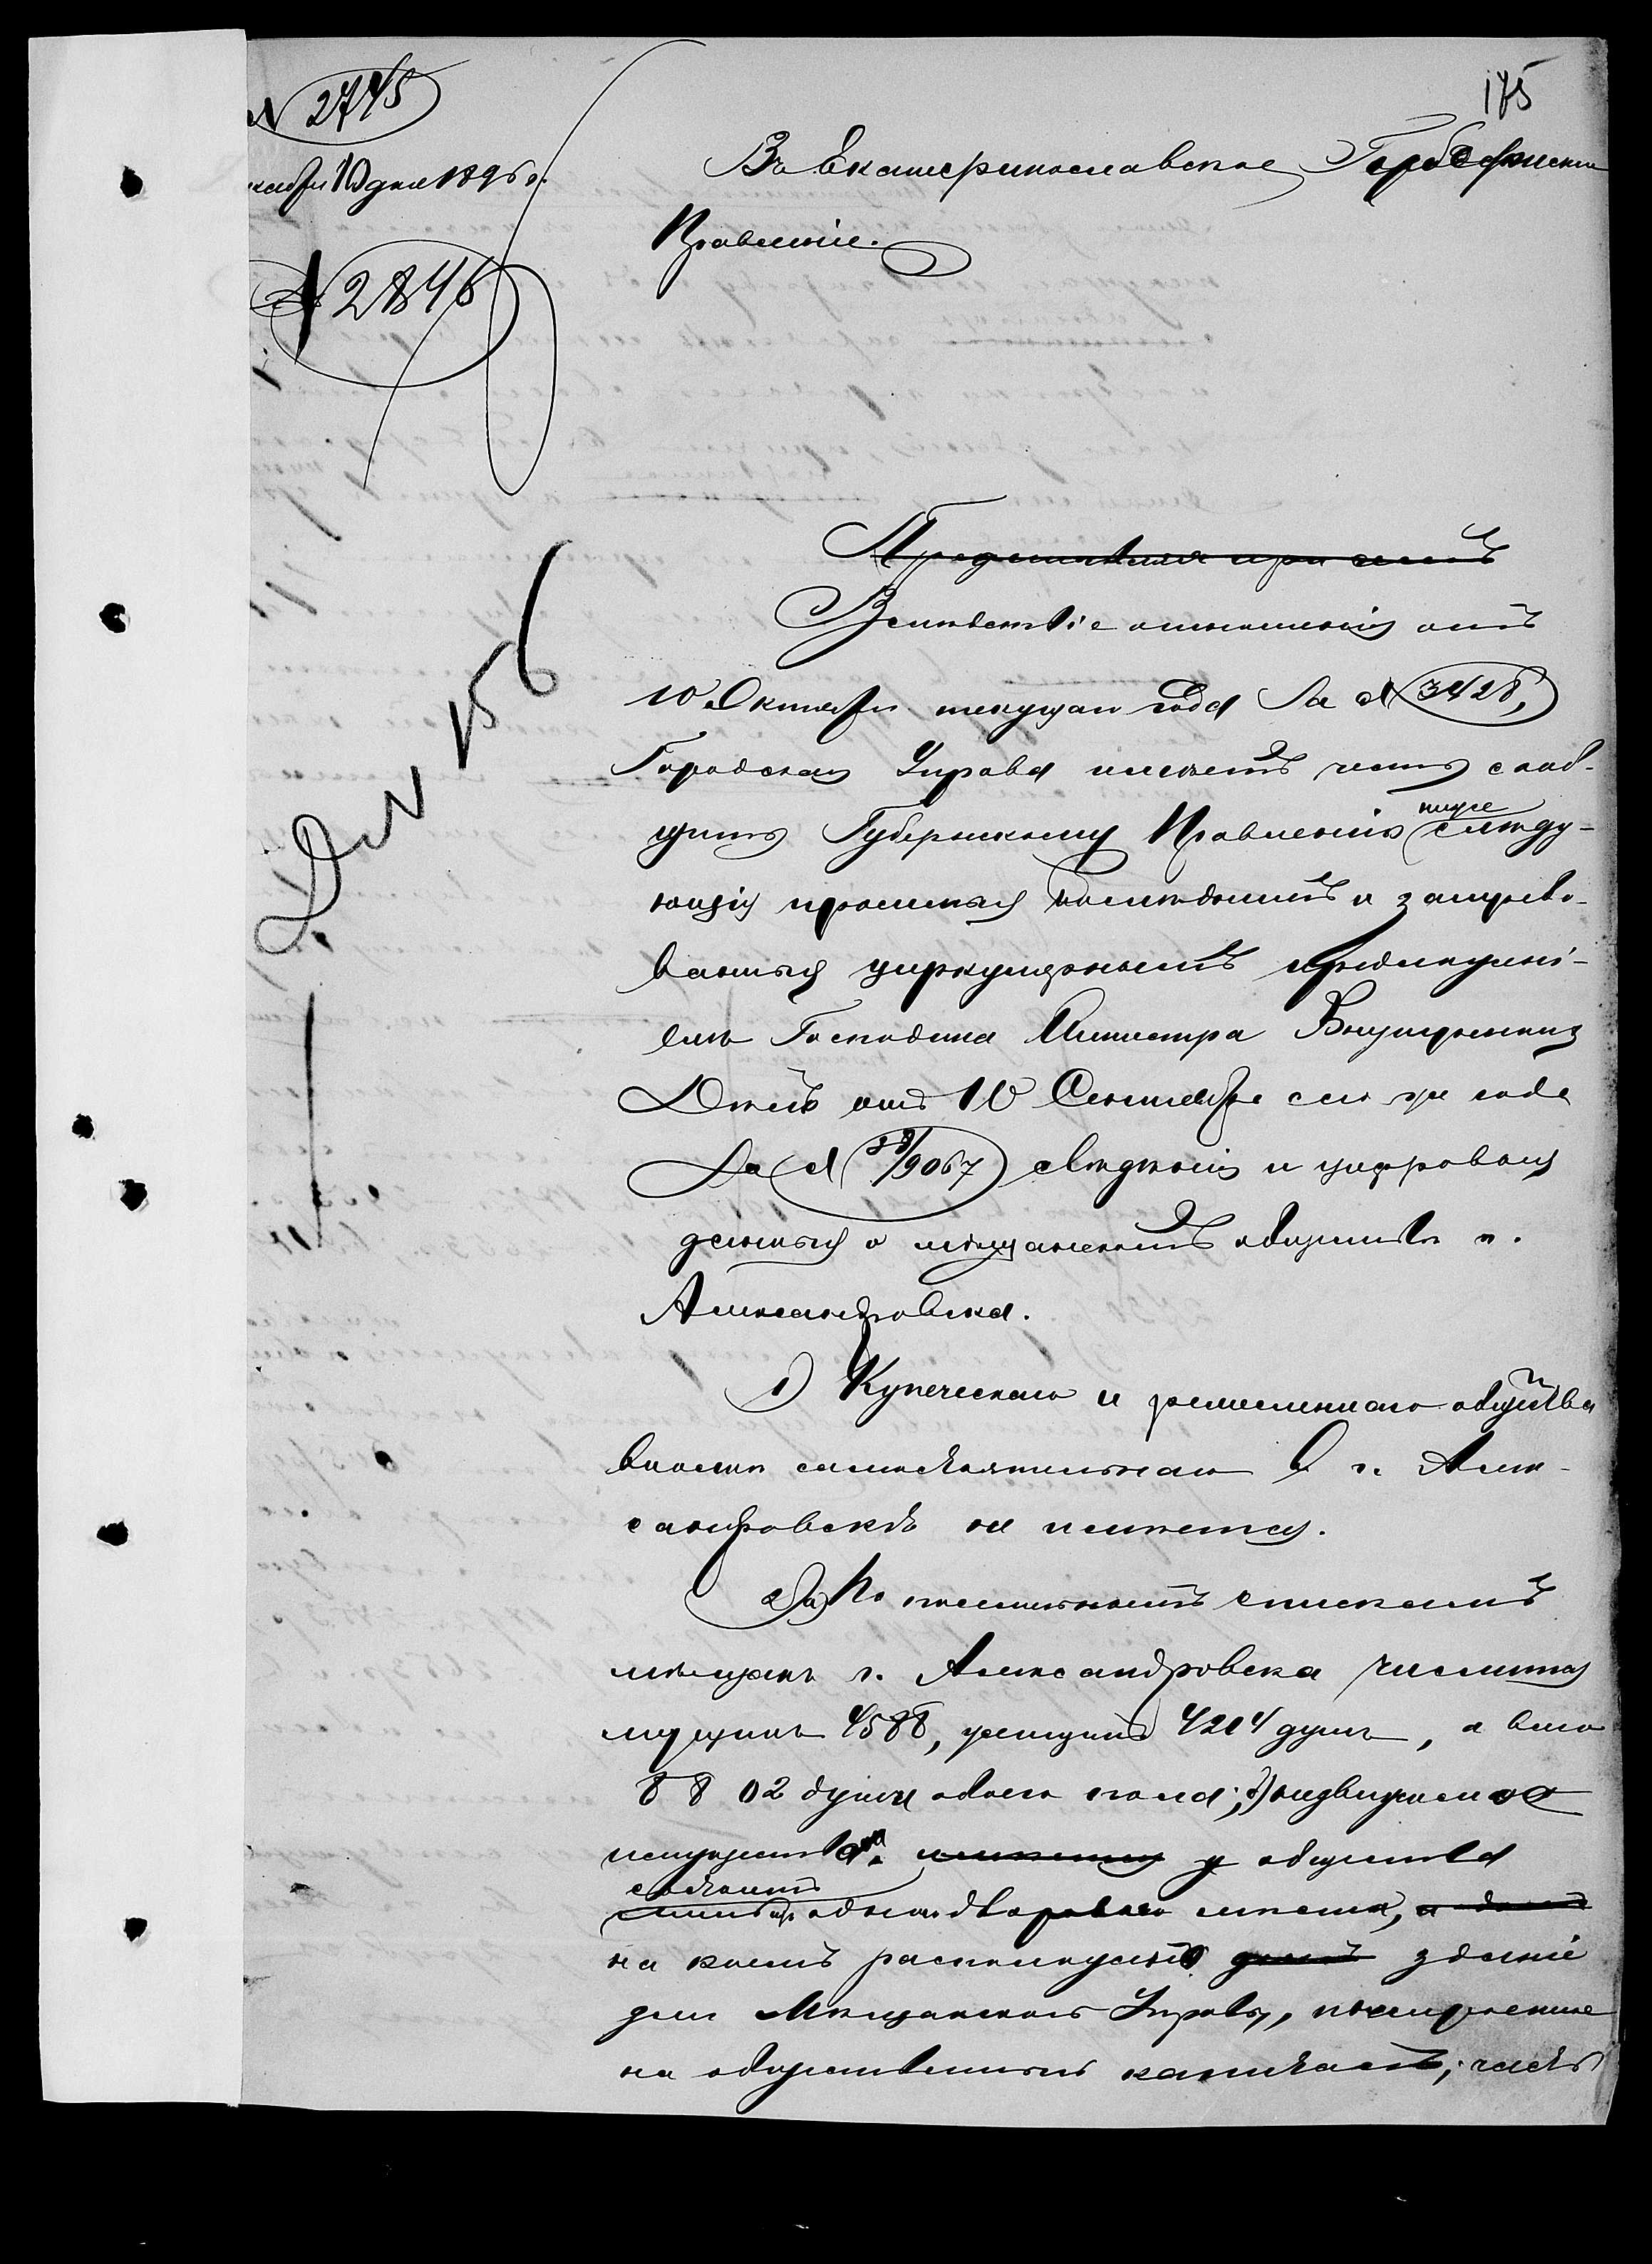 175
№ 2745
10 дня 1896 г.
№ 2846
Въ Екатеринославское Губернское
Правленіе.
Д. № 156
Представляя при семъ
Вслѣдствіе отношенія отъ
10 Октября текущаго года за № 3428,
Городская Управа имѣетъ честь сооб-
щить Губернскому Правленію ниже слѣду-
ющія просимыя послѣднимъ и затребо-
ванныя циркулярнымъ предложені-
емъ Господина Министра Внутреннихъ
Дѣлъ отъ 10 Сентября сего же года
за № 38/9067 свѣдѣнія и цифровыя
данныя о мѣщанскомъ обществѣ г.
Александровска.
1) Купеческаго и ремесленнаго общества
вполнѣ самостоятельнаго въ г. Алек-
сандровскѣ не имѣется.
2) По посемейнымъ спискамъ
мѣщанъ г. Александровска числится
мущинъ 4588, женщинъ 4214 душъ, а всего
8802 души обоего пола; 3) недвижимое
имущество имѣется у общества
состоитъ
изъ одного двороваго мѣста,
на коемъ расположено домъ зданіе
для Мѣщанской Управы, построенное
на общественный капиталъ; часть